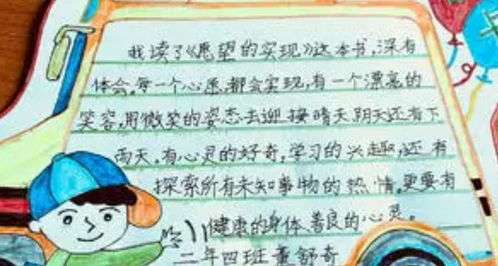 我读了《愿望的实现》这本书,深有
体会,每一个心愿,都会实现,有一个漂亮的
笑容,用微笑的姿态去迎接晴天阴天还有下
雨天,有心灵的好奇,学习的兴趣,还有
探索所有未知事物的热情,更要有
健康的身体、善良的心灵。
二年四班董舒奇